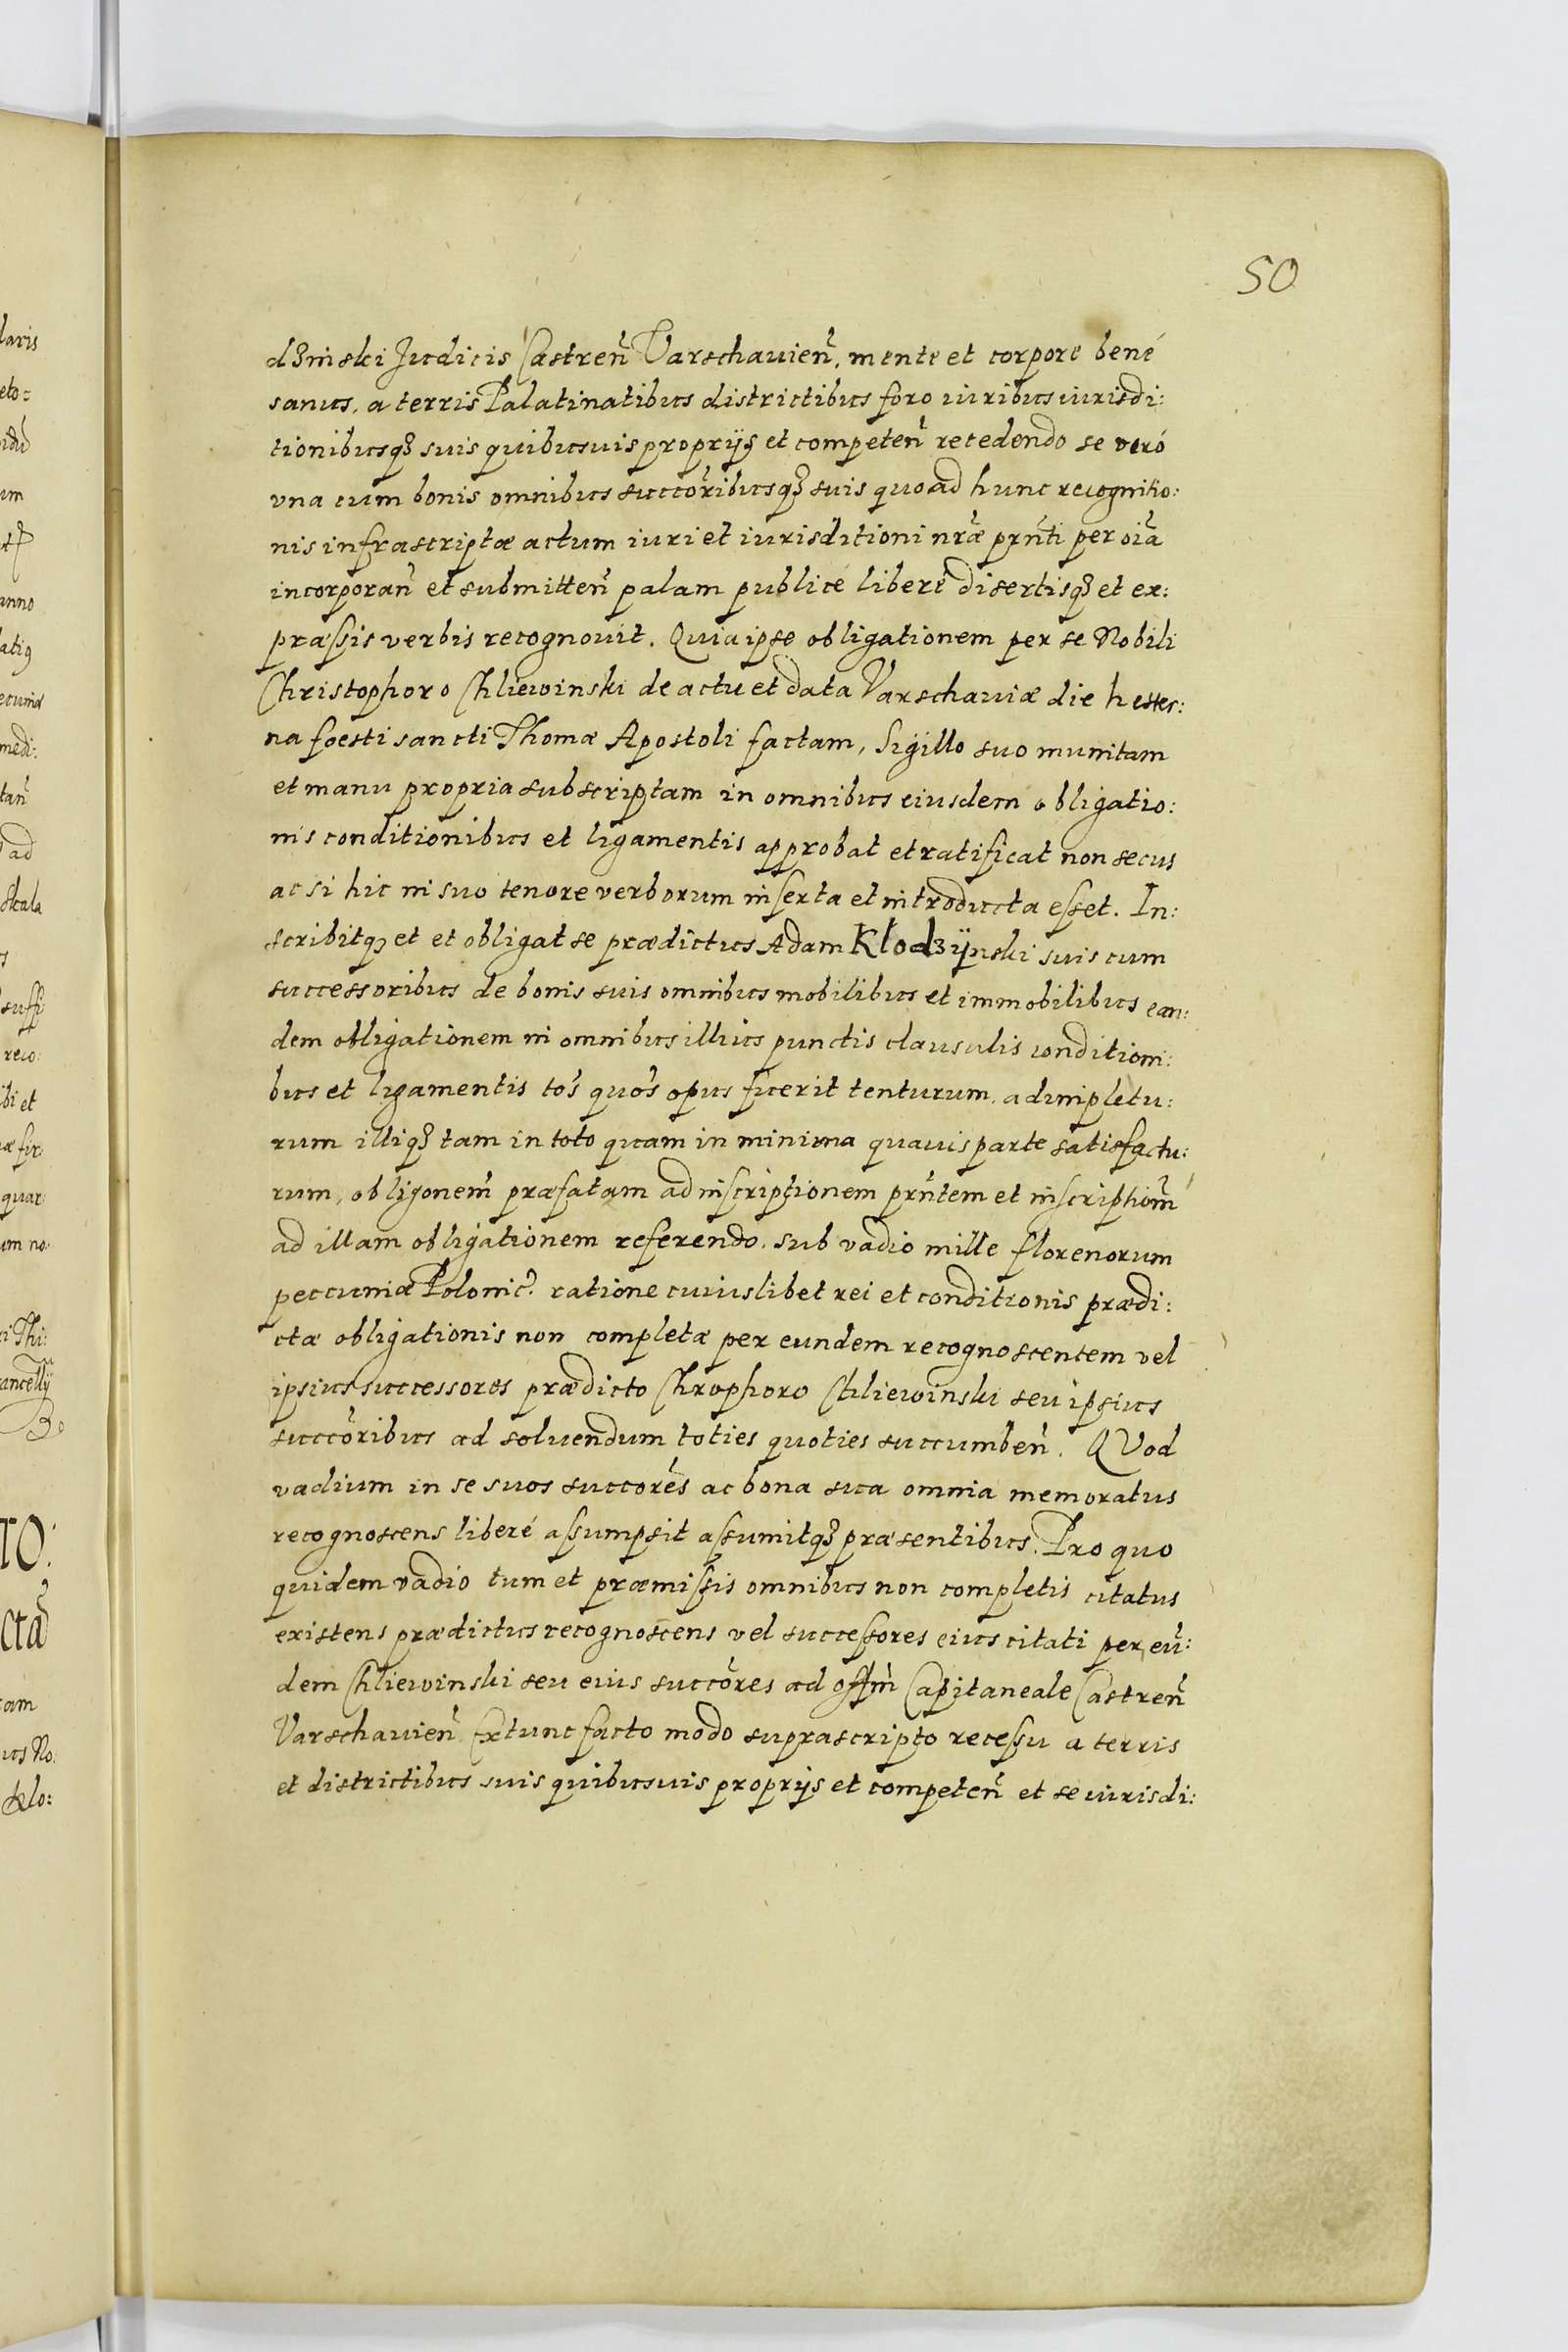 50
dzinski Judicis Castren̄ Varschauien̄, mente et corpore bené
sanus, a terris Palatinatibus districtibus foro iuribus iurisdi:
tionibusq3 suis quibusuis proprijs et competen̄ recedendo se veró
vna cum bonis omnibus succōribusq3 suis quo ad hunc recognitio:
nis infrascriptæ actum iuri et iurisditioni nr̄æ prn̄ti per oīa
incorporan̄ et submitten̄ palam publicé liberé disertisq3 et ex:
præssis verbis recognouit. Quia ipse obligationem per se Nobili
Christophoro Chliewinski de actu et data Varschauiæ die hester:
na foesti sancti Thomæ Apostoli factam, sigillo suo munitam
et manu propria subscriptam in omnibus eiusdem obligatio:
nis conditionibus et ligamentis approbat et ratificat non secus
ac si hic in suo tenore verborum inserta et introducta esset. In:
scribitq3 et et obligat se prædictus Adam Kłodzÿnski suis cum
successoribus de bonis suis omnibus mobilibus et immobilibus ean:
dem obligationem in omnibus illius punctis clausulis conditioni:
bus et ligamentis tōs quōs opus fuerit tenturum, adimpletu:
rum illiq3 tam in toto quam in minima quauis parte satisfactu:
rum, obligonem̄ præfatam ad inscriptionem prn̄tem et inscriptiom̄
ad illam obligationem referendo, sub vadio mille florenorum
peccuniæ Polonic̄. ratione cuiuslibet rei et conditionis prædi:
ctæ obligationis non completæ per eundem recognoscentem vel
ipsius successores prædicto Chrophoro Chliewinski seu ipsius
succōribus ad soluendum toties quoties succumben̄. QVod
vadium in se suos succorēs ac bona sua omnia memoratus
recognoscens liberé assumpsit assumitq3 præsentibus. Pro quo
quidem vadio tum et præmissis omnibus non completis citatus
existens prædictus recognoscens vel successores eius citati per eu̅:
dem Chliewinski seu eius succōres ad offm̄ Capitaneale Castren̄
Varschauien̄ Extunc facto modo suprascripto recessu a terris
et districtibus suis quibusuis proprijs et competen̄ et se iurisdi: